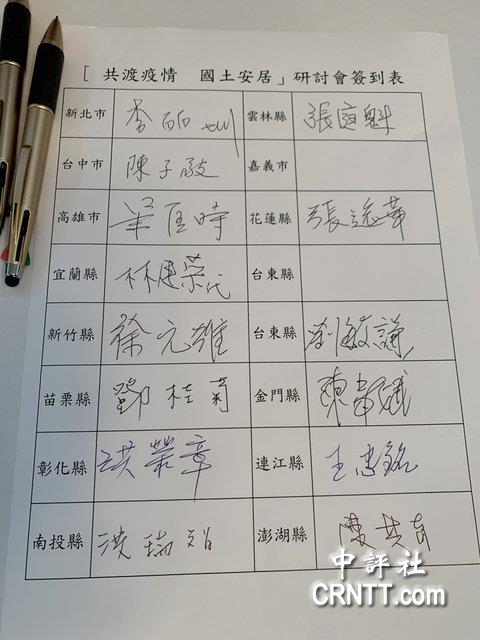 「共渡疫情　國土安居」研討會簽到表
新北市 李 雲林縣 張
台中市 陳子敬 嘉義市
高雄市 時 花蓮縣 張 華
宜蘭縣 林建榮代 台東縣
新竹縣 徐元雄 台東縣 謙
苗栗縣 鄧桂菊 金門縣 陳
彰化縣 洪榮章 連江縣 王忠銘
南投縣 洪瑞智 澎湖縣
中評社
CRNTT.com